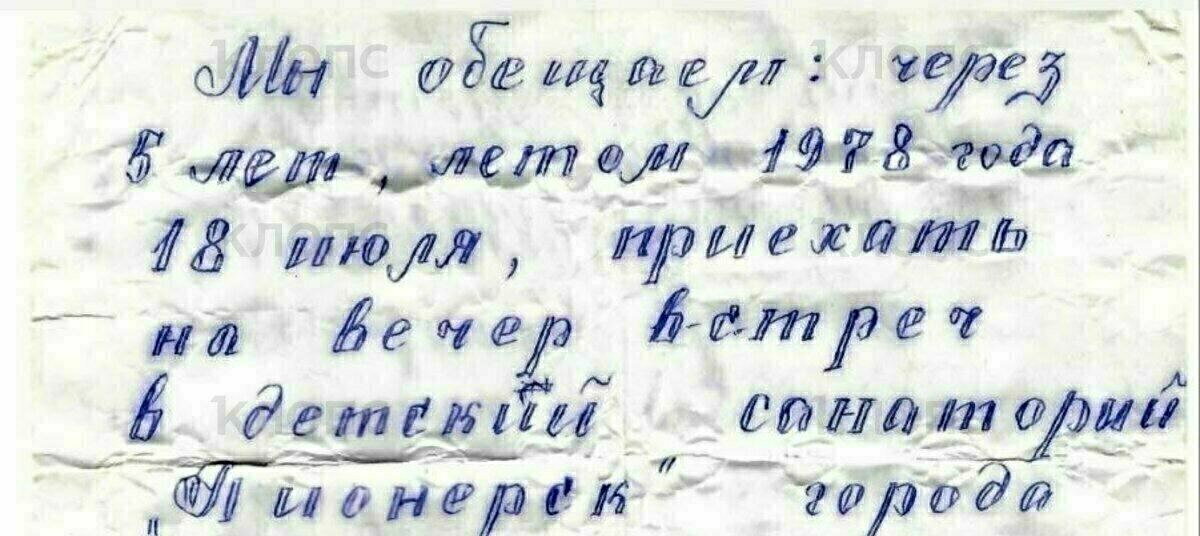 Мы обещаем: через
5 лет, летом 1978 года
18 июля, приехать
на вечер встреч
в детский санаторий
„Пионерск" города